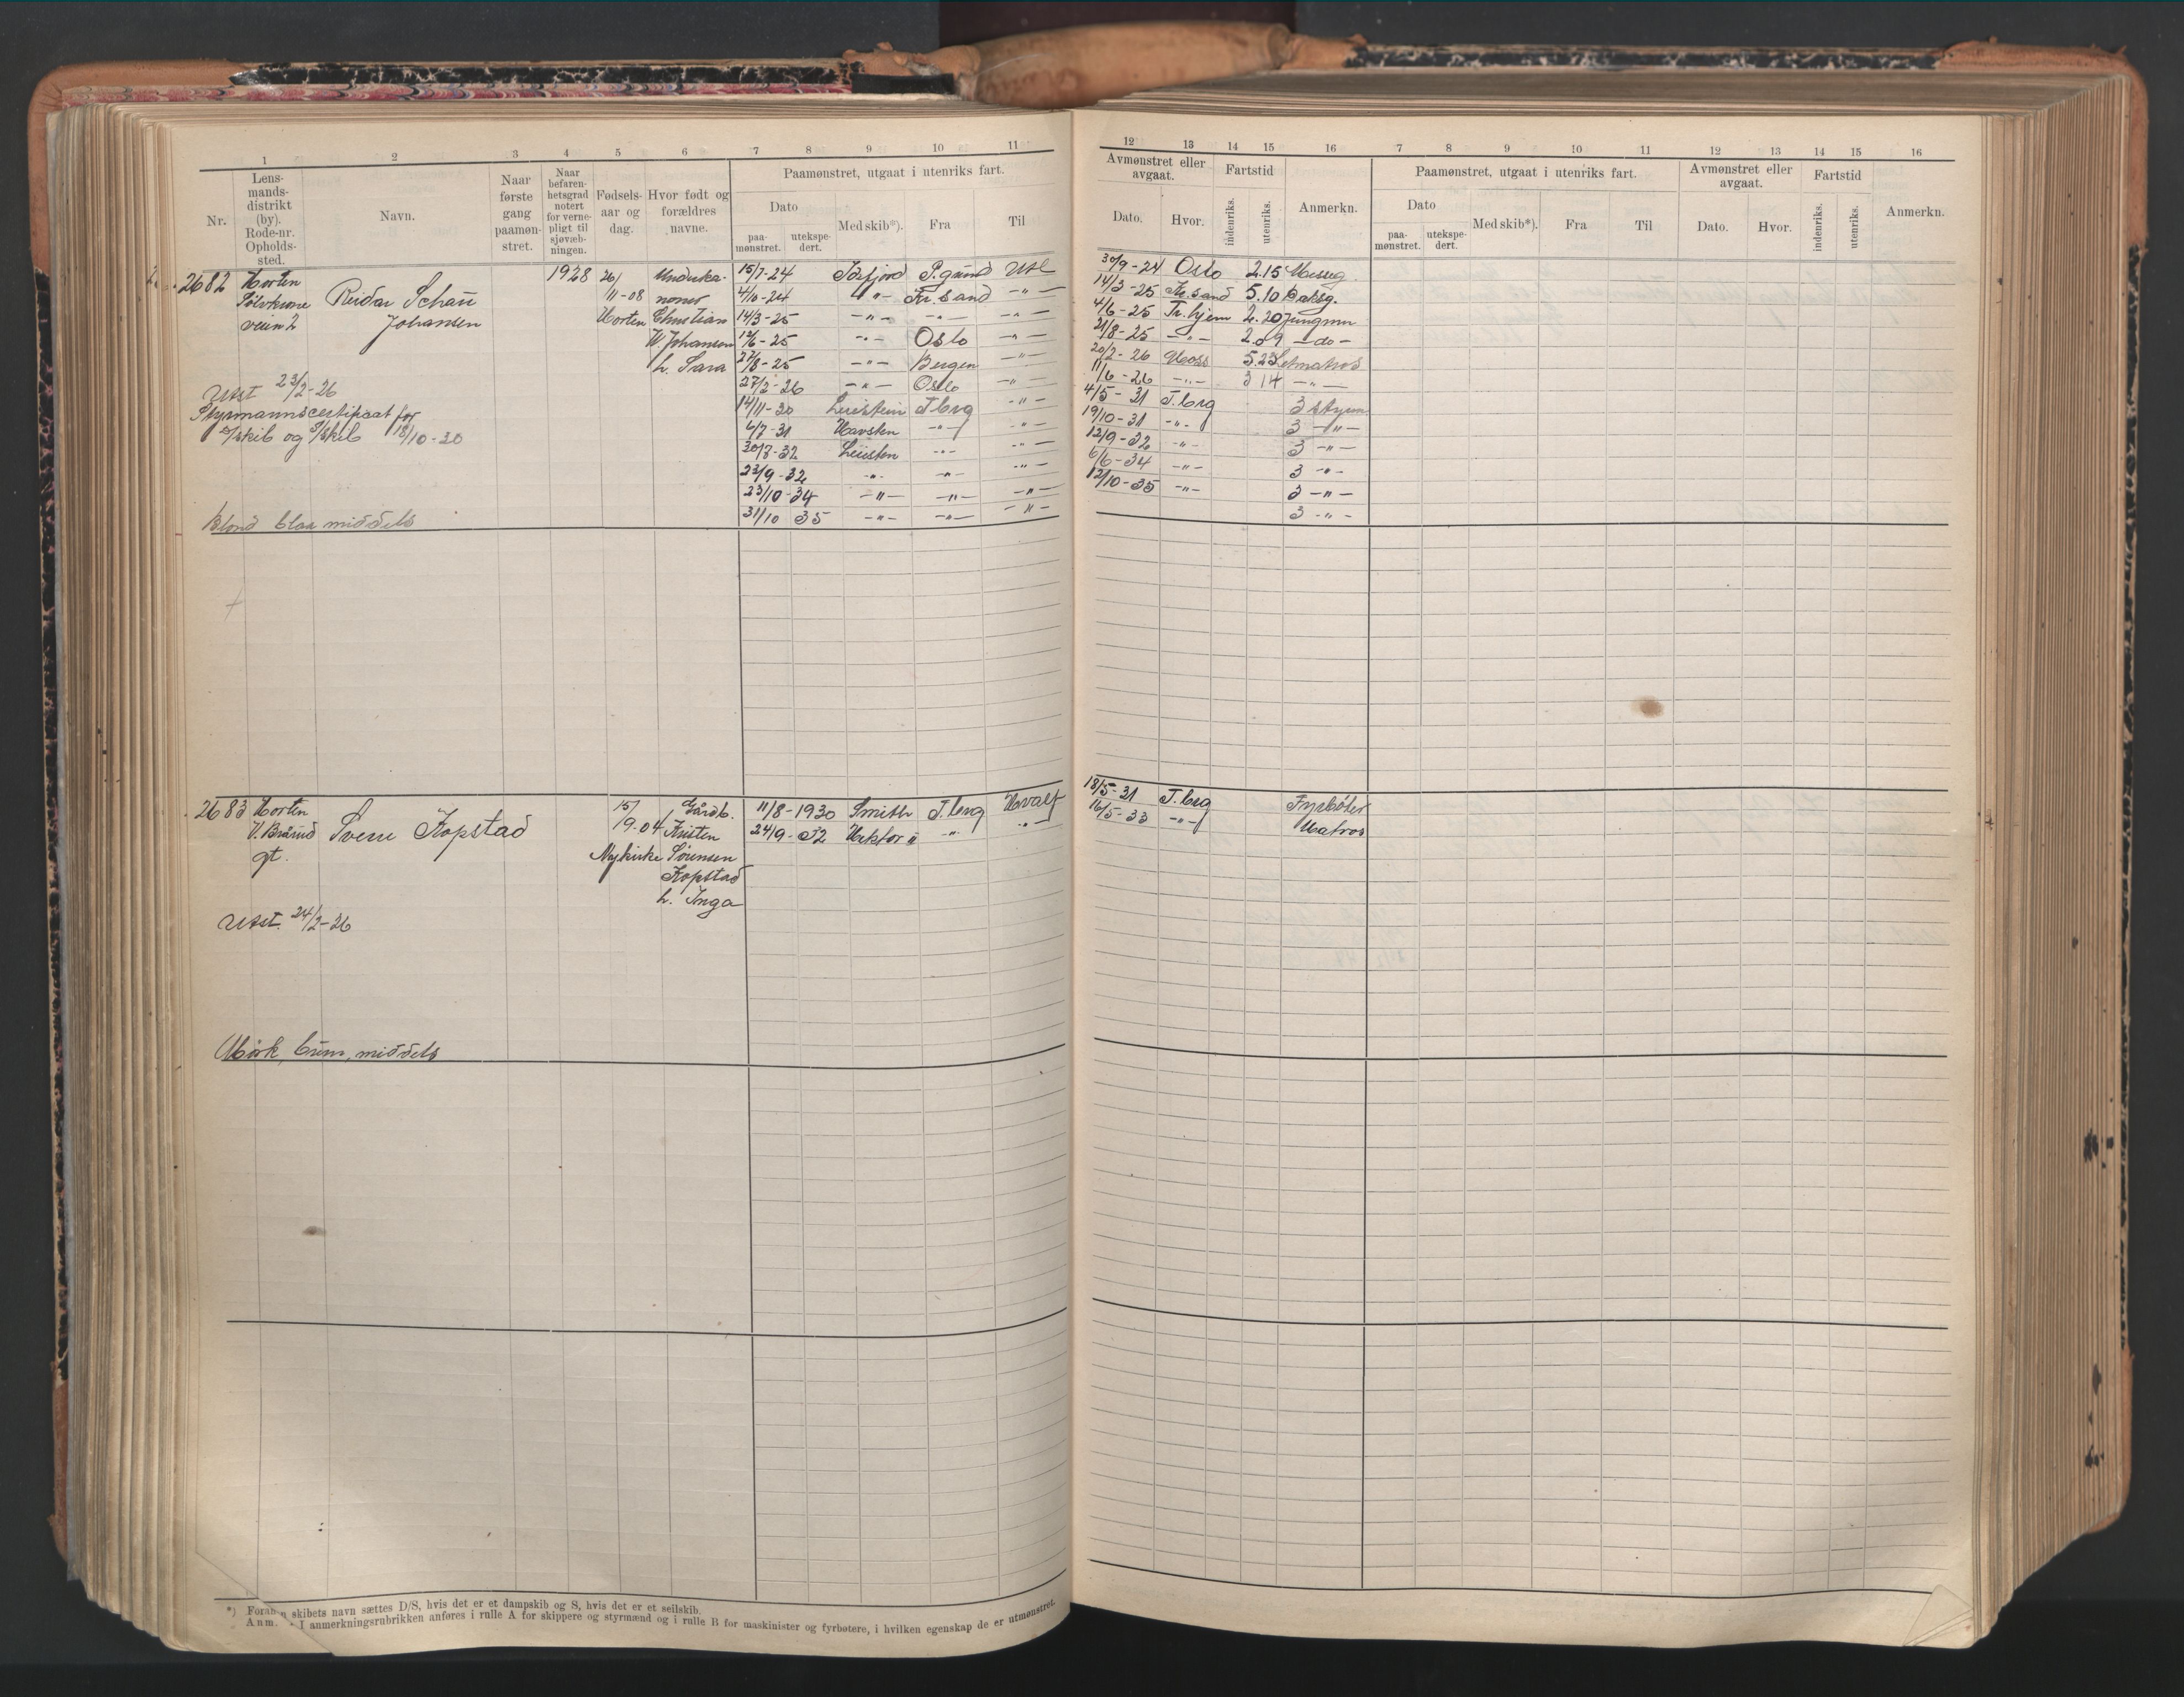 1 2 3 4 5 6 7 8 9 10 11
Nr.
Lens-
mands-
distrikt
(by).
Rode-nr.
Opholds-
sted.
Navn.
Naar
første
gang
paamøn-
stret.
Naar
befaren-
hetsgrad
notert
for verne-
pligt til
sjøvæb-
ningen.
Fødsels-
aar og
dag.
Hvor født og
forældres
navne.
Paamønstret, utgaat i utenriks fart.
Dato
paa-
mønstret.
utekspe-
dert.
Med skib*).
Fra
Til
2682 Horten
Sølvkrone
veien 2
Reidar Schau
Johansen
1928
26/
11-08
Horten
Underka-
noner
Christian
W. Johansen
h. Sara
15/7-24 Torfjord P.grund Utl
4/10-24 -"- Kr.sand -"-
14/3-25 -"- -"- -"-
12/6-25 -"- Oslo -"-
27/8-25 -"- Bergen -"-
27/2-26 -"- Oslo -"-
14/11-30 T.brg -"-
6/7-31 Havsten -"- -"-
30/8-32 -"- -"-
23/9-32 -"- -"- -"-
23/10-34 -"- -"- -"-
31/10 35 -"- -"- -"-
Utst 23/2-26
Styrmannscertifikat for
D/skib og S/skib 18/10-30
Blond blaa middels
2683 Horten
gt.
Sverre Kopstad
15/
9.04
Nykirke
Gårdb.
Kristen
Sørensen
Kopstad
h. Inga
11/8-1930 Smith T.brg Hvalf
24/9-32 Hektor " -"- -"-
Utst. 24/2-26
Mørk, brun, middels
*) Foran skibets navn sættes D/S, hvis det er et dampskib og S, hvis det er et seilskib.
Anm. - I anmerkningsrubrikken anføres i rulle A for skippere og styrmænd og i rulle B for maskinister og fyrbøtere, i hvilken egenskap de er utmønstret.
12 13 14 15 16 7 8 9 10 11 12 13 14 15 16
Avmønstret eller
avgaat.
Dato.
Hvor.
Fartstid
indenriks.
utenriks.
Anmerkn.
Paamønstret, utgaat i utenriks fart.
Dato
paa-
mønstret.
utekspe-
dert.
Med skib*).
Fra
Til
Avmønstret eller
avgaat.
Dato.
Hvor.
Fartstid
indenriks.
utenriks.
Anmerkn.
30/9-24 Oslo 2.15 Messeg
14/3-25 Kr.sand 5.10 Daksg.
4/6-25 Tr.hjem 2.20 Jungmn
21/8-25 -"- 2.09 -do-
20/2-26 Moss 5.23 Letmatros
11/6-26 -"- 3 14 -"-
4/5-31 T.brg 3 styrm
19/10-31 -"- 3 -"-
12/9-32 -"- 3 -"-
6/6-34 -"- 3 -"-
12/10-35 -"- 3 -"-
3 -"-
18/5-31 T.brg Fyrbøter
16/5-33 -"- Matros